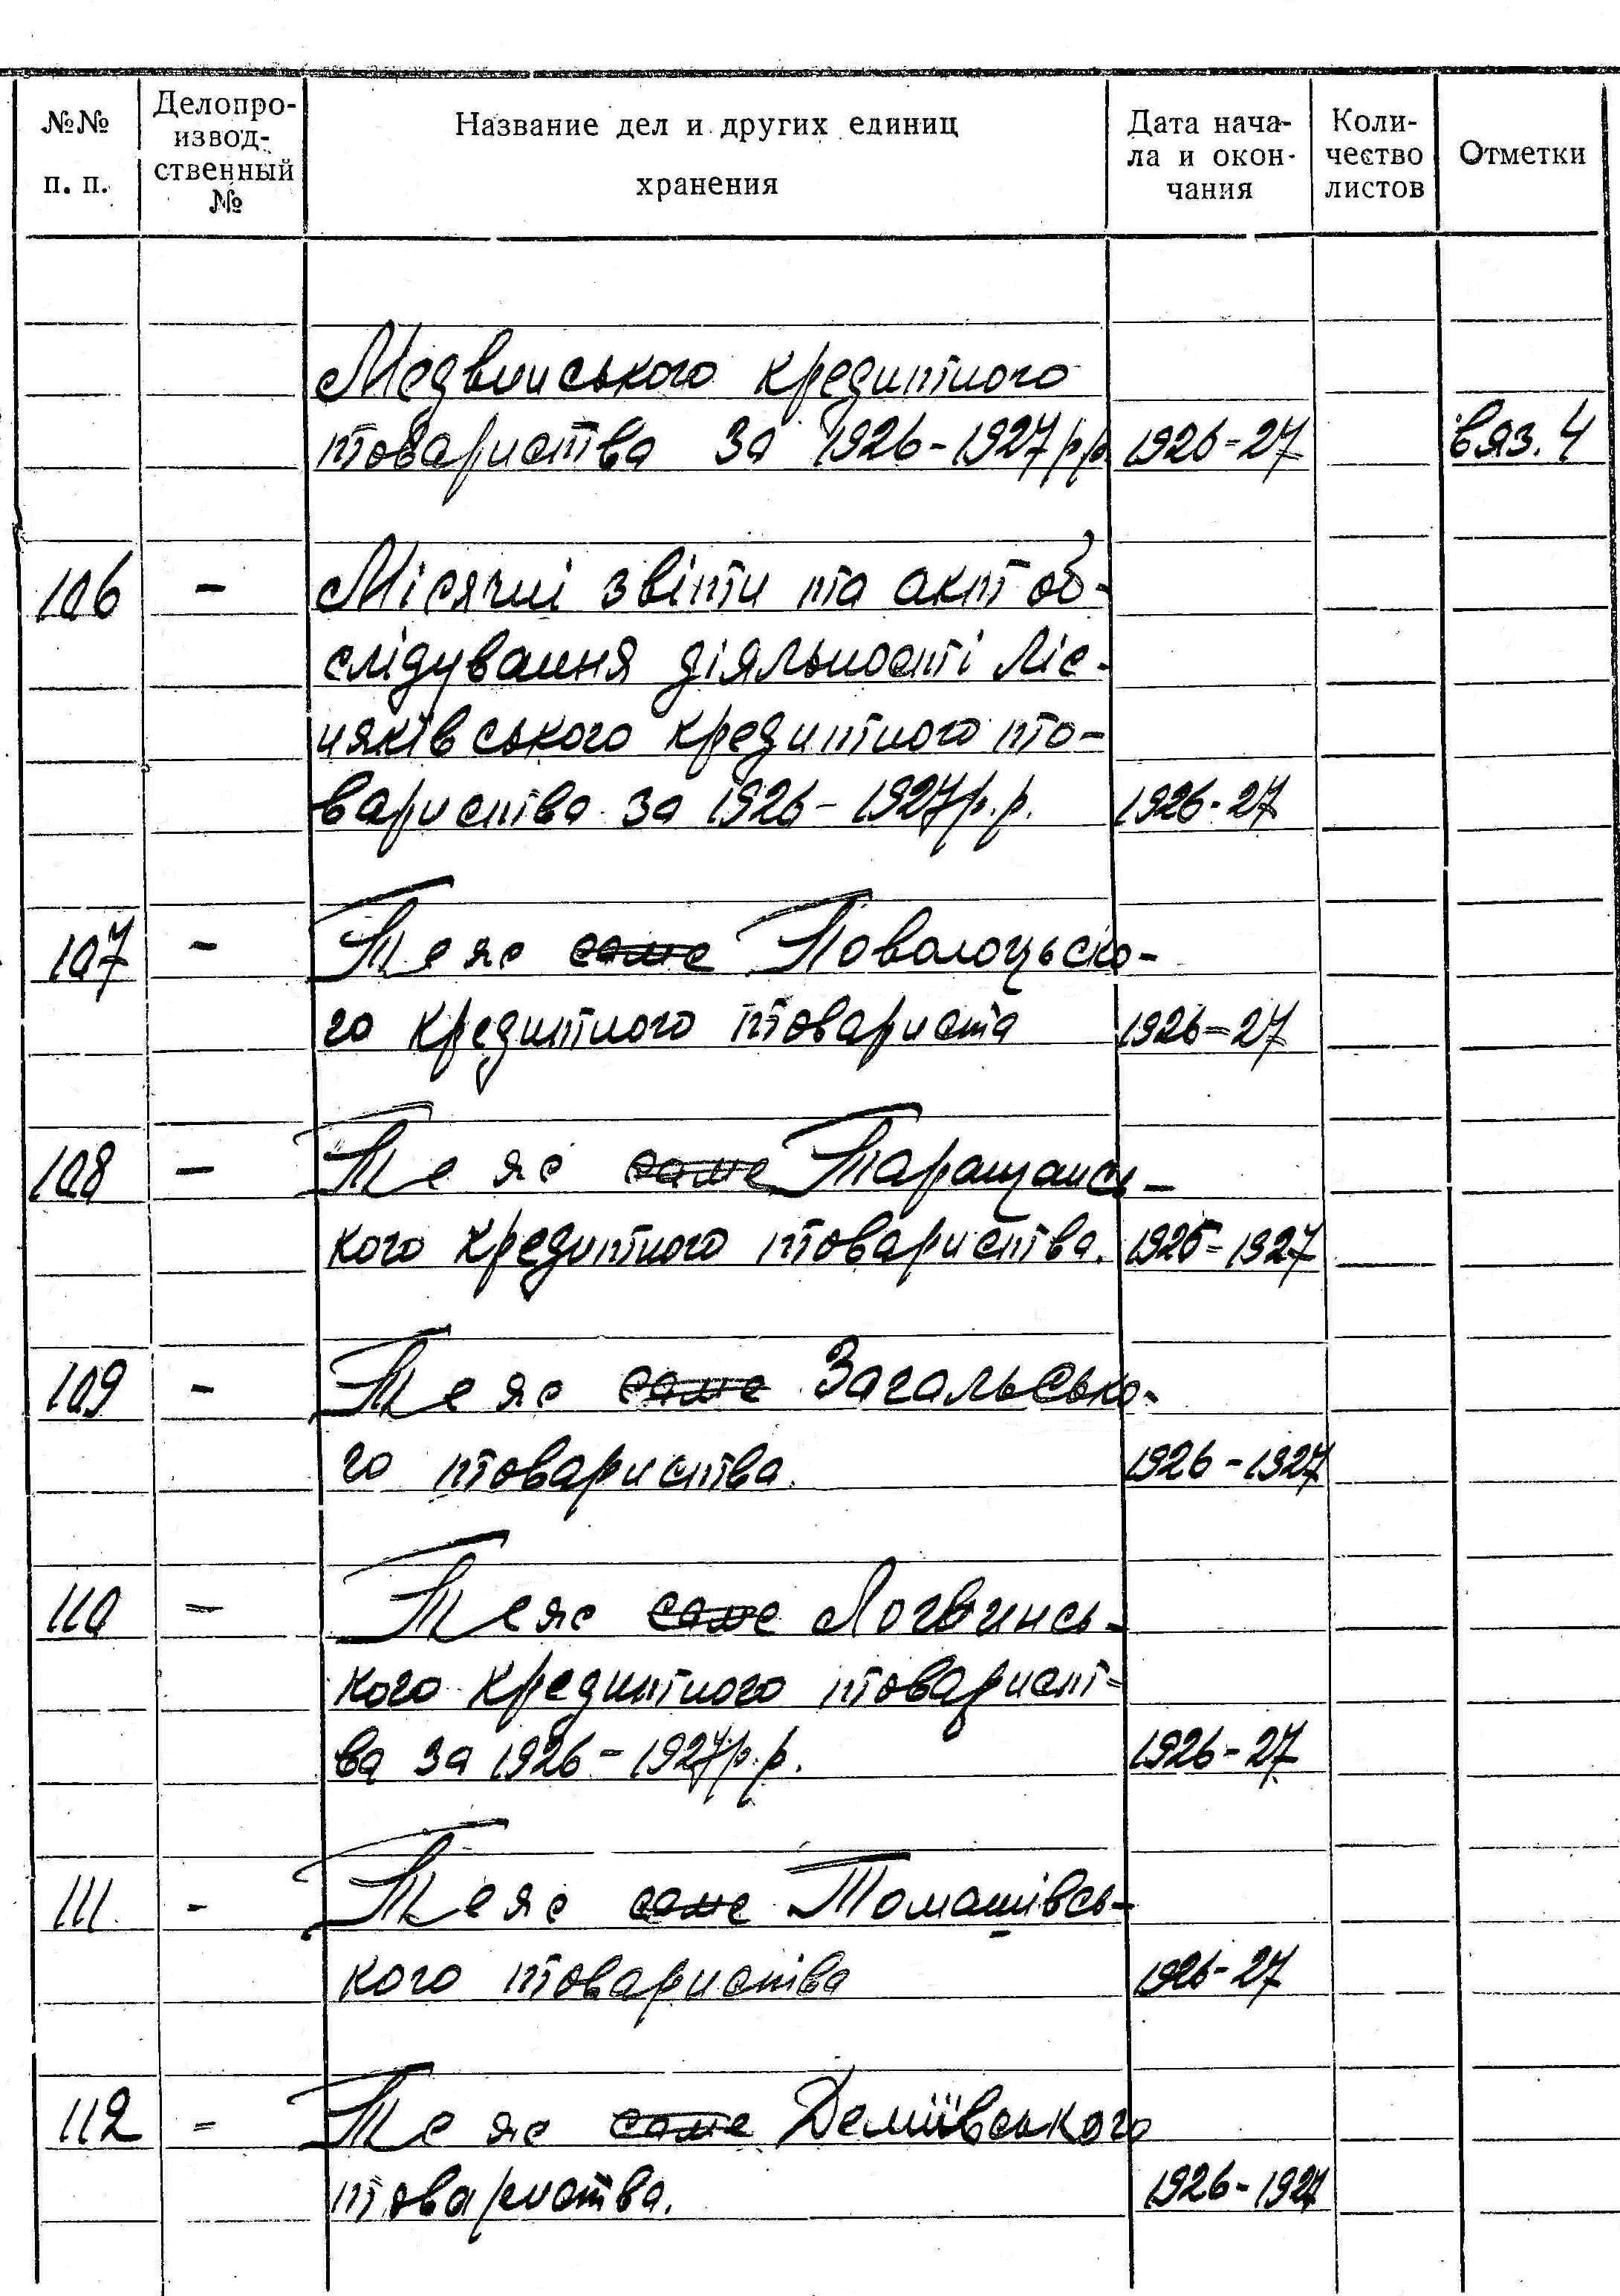 №№ п. п.
Делопро-
извод-
ственный
№
Название дел и других единиц
хранения
Дата нача-
ла и окон-
чания
Коли-
чество
листов
Отметки
Медвинського кредитного
товариства за 1926-1927 р.р. 1926-27 вяз. 4
106 - Місячні звіти та акт об-
слідування діяльності Ліс-
няківського кредитного то-
вариства за 1926-1927 р.р. 1926-27
107 - Те же саме Поволоцько-
го кредитного товариста 1926-27
108 - Те же саме Таращансь-
кого кредитного товариства. 1926-1927
109 - Те же саме Загальсько-
го товариства. 1926-1927
110 - Теже саме Логвинсь-
кого кредитного товарист-
ва за 1926-1927 р.р. 1926-27
111 - Теже саме Томашівсь-
кого товариства 1926-27
112 - Те же саме Деміївського
товариства. 1926-1927